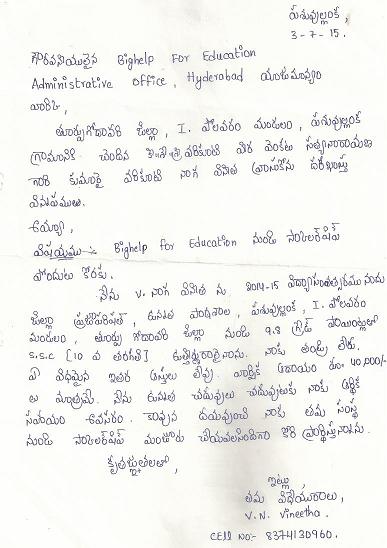 పశువుల్లంక,
3-7-15.
గౌరవనీయులైన Bighelp For Education
Administrative office, Hyderabad యాజమాన్యం
వారికి,
తూర్పుగోదావరి జిల్లా, I. పోలవరం మండలం, పశువుల్లంక
గ్రామానికి చెందిన వరికూటి వీర వెంకట సత్యనారాయణ
గారి కుమార్తె వరికూటి నాగ వినీత వ్రాసుకొను దరఖాస్తు
విన్నపములు.
అయ్యా,
విషయము :- Bighelp for Education నుండి స్కాలర్‌షిప్
పొందుట కొరకు.
నేను V. నాగ వినీత ను 2014-15 విద్యాసంవత్సరము నందు
జిల్లా ప్రజాపరిషత్, ఉన్నత పాఠశాల, పశువుల్లంక, I. పోలవరం
మండలం, తూర్పు గోదావరి జిల్లా నుండి 9.8 గ్రేడ్ పాయింట్లుతో
S.S.C [10 వ తరగతి] ఉత్తీర్ణురాలైనాను. నాకు తండ్రి లేరు.
ఏ విధమైన ఇతర ఆస్తులు లేవు. వార్షిక ఆదాయం రూ. 40,000/-
లు మాత్రమే. నేను ఉన్నత చదువులు చదువుటకు నాకు ఆర్థిక
సహాయం అవసరం. కావున దయవుంచి నాకు తమ సంస్థ
నుండి స్కాలర్‌షిప్ మంజూరు చేయవలసిందిగా కోరి ప్రార్థిస్తున్నాను.
కృతజ్ఞతలతో,
ఇట్లు
తమ విధేయురాలు,
V.N. Vineetha.
Cell No:- 8374130960.